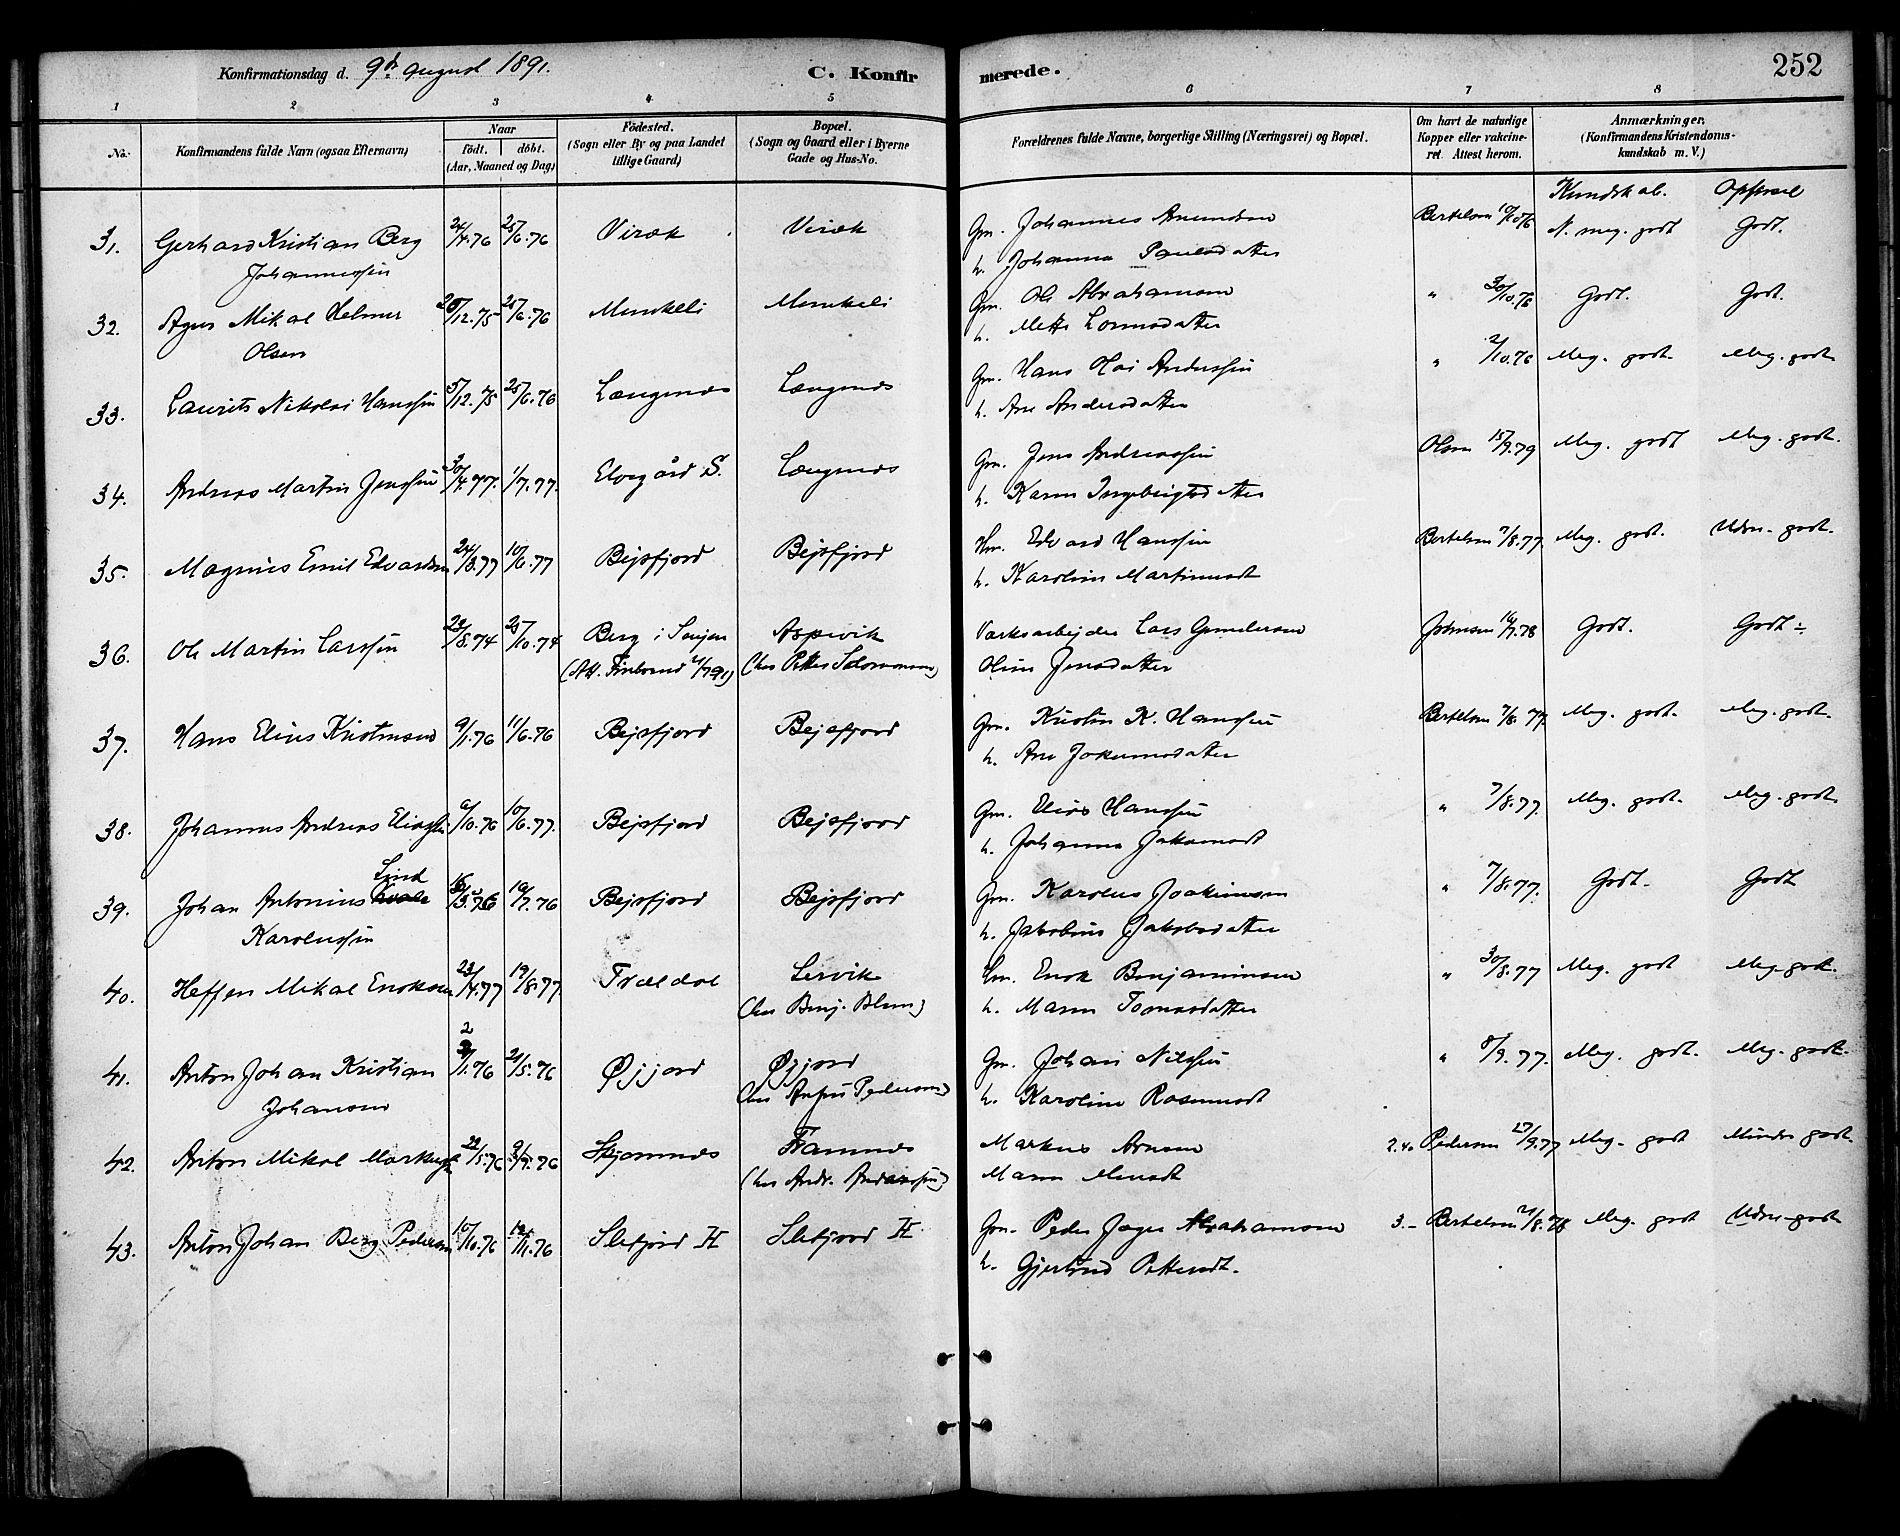 Konfirmationsdag d. 9de august 1891.
C. Konfirmerede.
252
1 2 3 4 5 6 7 8
No.
Konfirmandens fulde Navn (ogsaa Efternavn)
Naar
født. døbt.
(Aar, Maaned og Dag)
Fødested.
(Sogn eller By og paa Landet
tillige Gaard)
Bopæl.
(Sogn og Gaard eller i Byerne
Gade og Hus-No.
Forældrenes fulde Navne, borgerlige Stilling (Næringsvei) og Bopæl.
Om havt de naturlige
Kopper eller vakcine-
ret. Attest herom.
Anmærkninger.
(Konfirmandens Kristendoms-
kundskab m. V.)
Kundskab. Opførsel
31. Gerhard Kristian Berg 24/4.76 25/6.76 Viræk Viræk Gm. Johannes Amundsen Bertelsen N. meg. godt Godt.
Johannessen h. Johanna Paulsdatter
32. Mikal Helmer 25/6.76 Gm. Ole Abrahamsen " 30/10.76 Godt. Godt.
Olsen h. Mette
33. Laurits Nikolai Hanssen 5/12.75 25/6.76 Gm. Hans Andersen " 2/10.76 Meg. godt. Meg. godt
h. Ane Andersdatter
34. Andreas Martin Jenssen 30/4.77. 1/7.77. Elvegård S. Gm. Jens Andreassen Olsen 15/9.79 Meg. godt Meg. godt.
h. Karen Ingebrigtsdatter
35. Magnus Emil Edvardsen 24/3.77 10/6.77 Bejsfjord Bejsfjord Hm. Edvard Hanssen Bertelsen 7/8.77. Meg. godt. Udm. godt.
h. Karoline Martinusdt
36. Ole Martin Larssen 22/8.74 25/10.74 Berg i Senjen Aspevik Værksarbejder Lars Gundersen Johnsen 16/7.78 Godt. Godt ÷
(hos Petter Salomonsen) Oline Jensdatter
37. Hans Elias Kristensen 9/1.76 11/6.76 Bejsfjord Bejsfjord Gm. Kristen K. Hanssen Bertelsen 7/8.77. Meg. godt. Meg. godt.
h. Ane
38. Johannes Andreas Eliassen 6/10.76 10/6.77. Bejsfjord Bejsfjord Gm. Elias Hanssen " 7/8.77. Meg. godt. Meg. godt.
h. Johanna
39. Johan Antonius Lind 19/7.76 Bejsfjord Bejsfjord Gm. Karolus Joakimsen " 7/8.77. Godt. Godt
Karolussen h. Jakobine Jakobsdatter
40. Mikal Enoksen 23/4.77 19/8.77. Trældal Lervik Enok Benjaminsen " 30/8.77 Meg. godt Meg. godt.
(hos Benj. Blom) h. Maren Tomasdatter
41. Anton Johan Kristian 21/5.76 Øjjord Øjjord Gm. Johan Nilssen " 8/9.77. Meg. godt. Meg. godt.
Johansen hos Pedersen h. Karoline Rasmusdt
42. Anton Mikal Markussen 22/5.76 9/7.76 Skjomnes Framnes Markus Arnesen 2.40 Pedersen 27/9.77 Meg. godt Mindre godt.
(hos Andr. Andreassen) Maren
43. Anton Johan Berg Pedersen 10/10.76 19/11.76 Slefjord H Slefjord H Gm. Peder Jæger Abrahamsen 3.— Bertelsen 21/8.78 Meg. godt Udm. godt
h. Gjertrud Pettersdt.